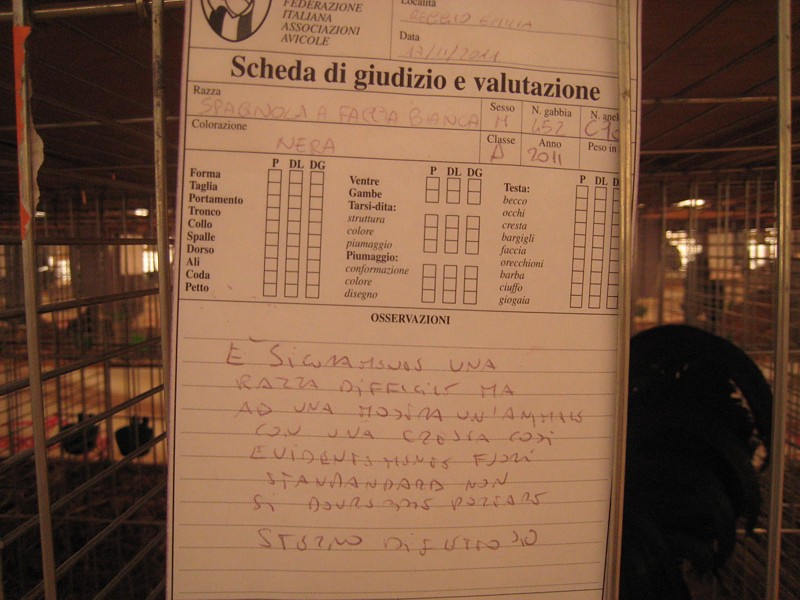 FEDERAZIONE
ITALIANA
ASSOCIAZIONI
AVICOLE
Località
REGGIO EMILIA
Data
13/11/2011
Scheda di giudizio e valutazione
Razza
SPAGNOLA A FACCIA BIANCA
Sesso
M
N. gabbia
452
N. anel
Colorazione
NERA
Classe
A
Anno
2011
Peso in
P DL DG
Forma
Taglia
Portamento
Tronco
Collo
Spalle
Dorso
Ali
Coda
Petto
P DL DG
Ventre
Gambe
Tarsi-dita:
struttura
colore
piumaggio
Piumaggio:
conformazione
colore
disegno
P DL D
Testa:
becco
occhi
cresta
bargigli
faccia
orecchioni
barba
ciuffo
giogaia
OSSERVAZIONI
È SICURAMENTE UNA
RAZZA DIFFICILE MA
AD UNA MOSTRA UN'ANIMALE
CON UNA CRESTA COSÌ
EVIDENTEMENTE FUORI
STANDARDARD NON
SI DOVREBBE PORTARE
STERNO DIFETTOSO